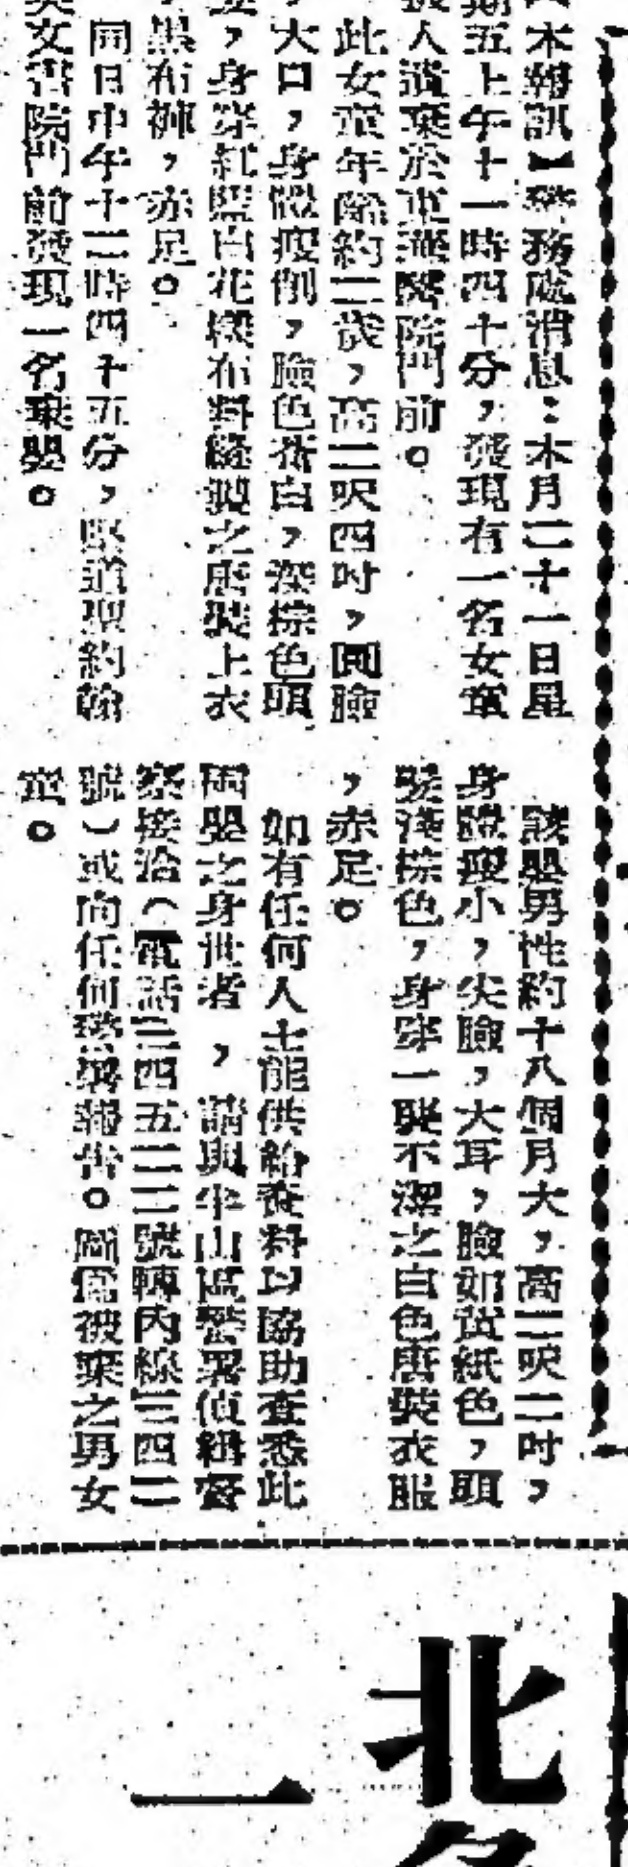 本報訊】警務處消息：本月二十一日星
期五上午十一時四十分，發現有一名女童
被人遺棄於東華醫院門前。
此女童年齡約二歲，高二呎四吋，圓臉
，大口，身體瘦削，臉色蒼白，深棕色頭
髮，身穿紅藍白花樣布料縫製之唐裝上衣
，黑布褲，赤足。
同日中午十二時四十五分，堅道聖約翰
英文書院門前發現一名棄嬰。
該嬰男性約十八個月大，高二呎二吋，
身體瘦小，尖臉，大耳，臉如黃紙色，頭
髮淺棕色，身穿一襲不潔之白色唐裝衣服
，赤足。
如有任何人士能供給資料以協助查悉此
兩嬰之身世者，請與半山區警署偵緝督
察接洽（電話三四五二二號轉內線三四二
號）或向任何警署報告。圖為被棄之男女
童。
北
一